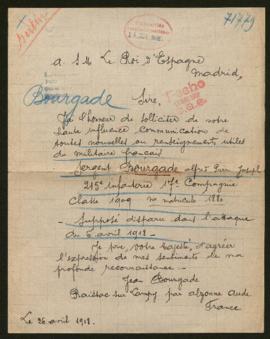 71779
A S. M. Le Roi d'Espagne
Madrid,
Bourgade
Sire,
J'ai l'honneur de solliciter de votre
haute influence, communication de
toutes nouvelles ou renseignements utiles
du militaire français
Sergent Bourgade Alfred Pierre Joseph
215e Infanterie 17e Compagnie
Classe 1909 no matricule 1882
Supposé disparu dans l'attaque
du 5 avril 1918 -
Je prie, votre Majesté, d'agréer
l'expression de mes sentiments de ma
profonde reconnaissance -
Jean Bourgade
Raissac sur Lampy par Alzonne Aude
France
Le 26 avril 1918.